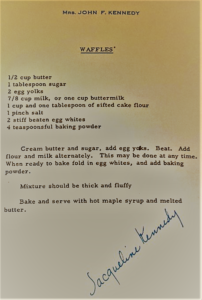 MRS JOHN F. KENNEDY
WAFFLES
1/2 cup butter
1 tablespoon sugar
2 egg yolks
7/8 cup milk, or one cup buttermilk
1 cup and one tablespoon of sifted cake flour
1 pinch salt
2 stiff beaten egg whites
4 teaspoonsful baking powder
Cream butter and sugar, add egg yoks. Beat. Add
flour and milk alternately. This may be done at any time.
When ready to bake fold in egg whites, and add baking
powder.
Mixture should be thick and fluffy
Bake and serve with hot maple syrup and melted
butter.
Jacqueline Kennedy